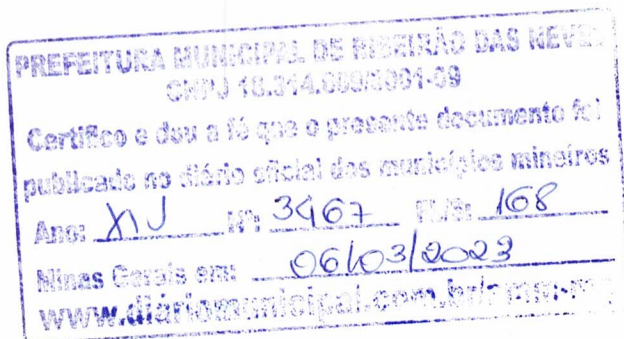 PREFEITURA MUNICIPAL DE RIBEIRÃO DAS NEVES
CNPJ 18.314.609/0001-09
Certifico e dou a fé que o presente documento foi
publicado no diário oficial dos municípios mineiros
Ano: XIV Nº: 3467 FL/S: 168
Minas Gerais em: 06/03/2023
www.diáriomunicipal.com.br/amm-mg